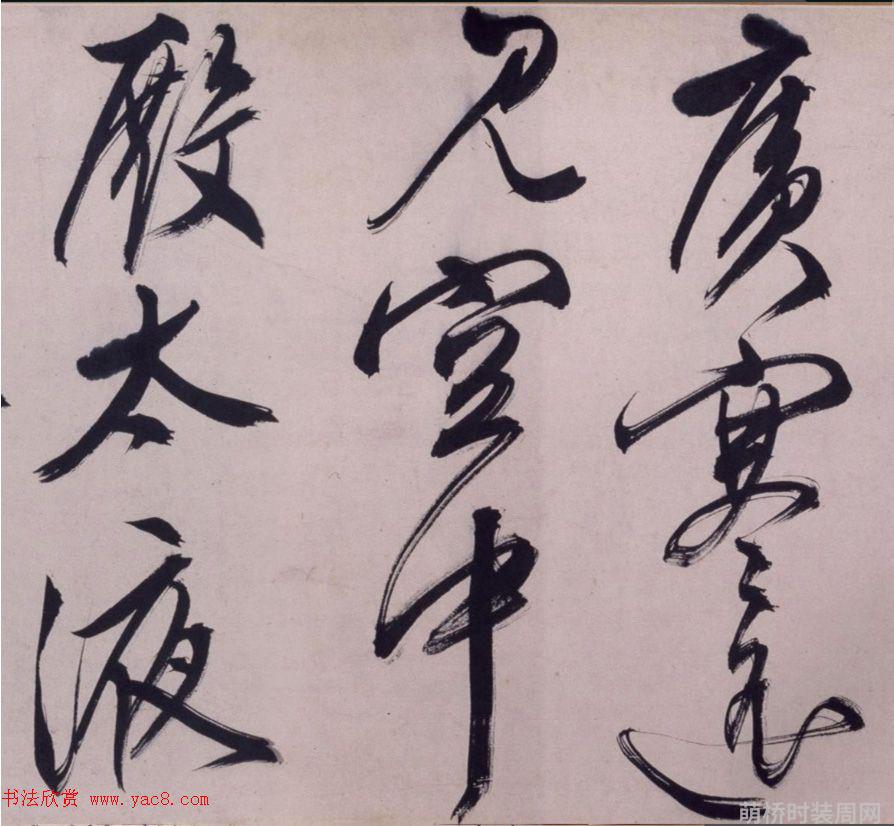 廣寒遙
見空中
殿太液
书法欣赏 www.yac8.com
萌桥时装周网